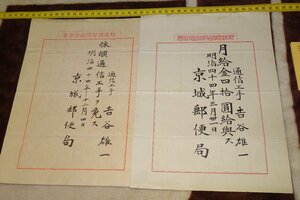 通信工手 吉谷雄一
月給金四拾圓給與ス
明治四十四年三月
京城郵便局
通信工手 吉谷雄一
依願通信工手ヲ免ス
明治四十四年十一月四日
京城郵便局